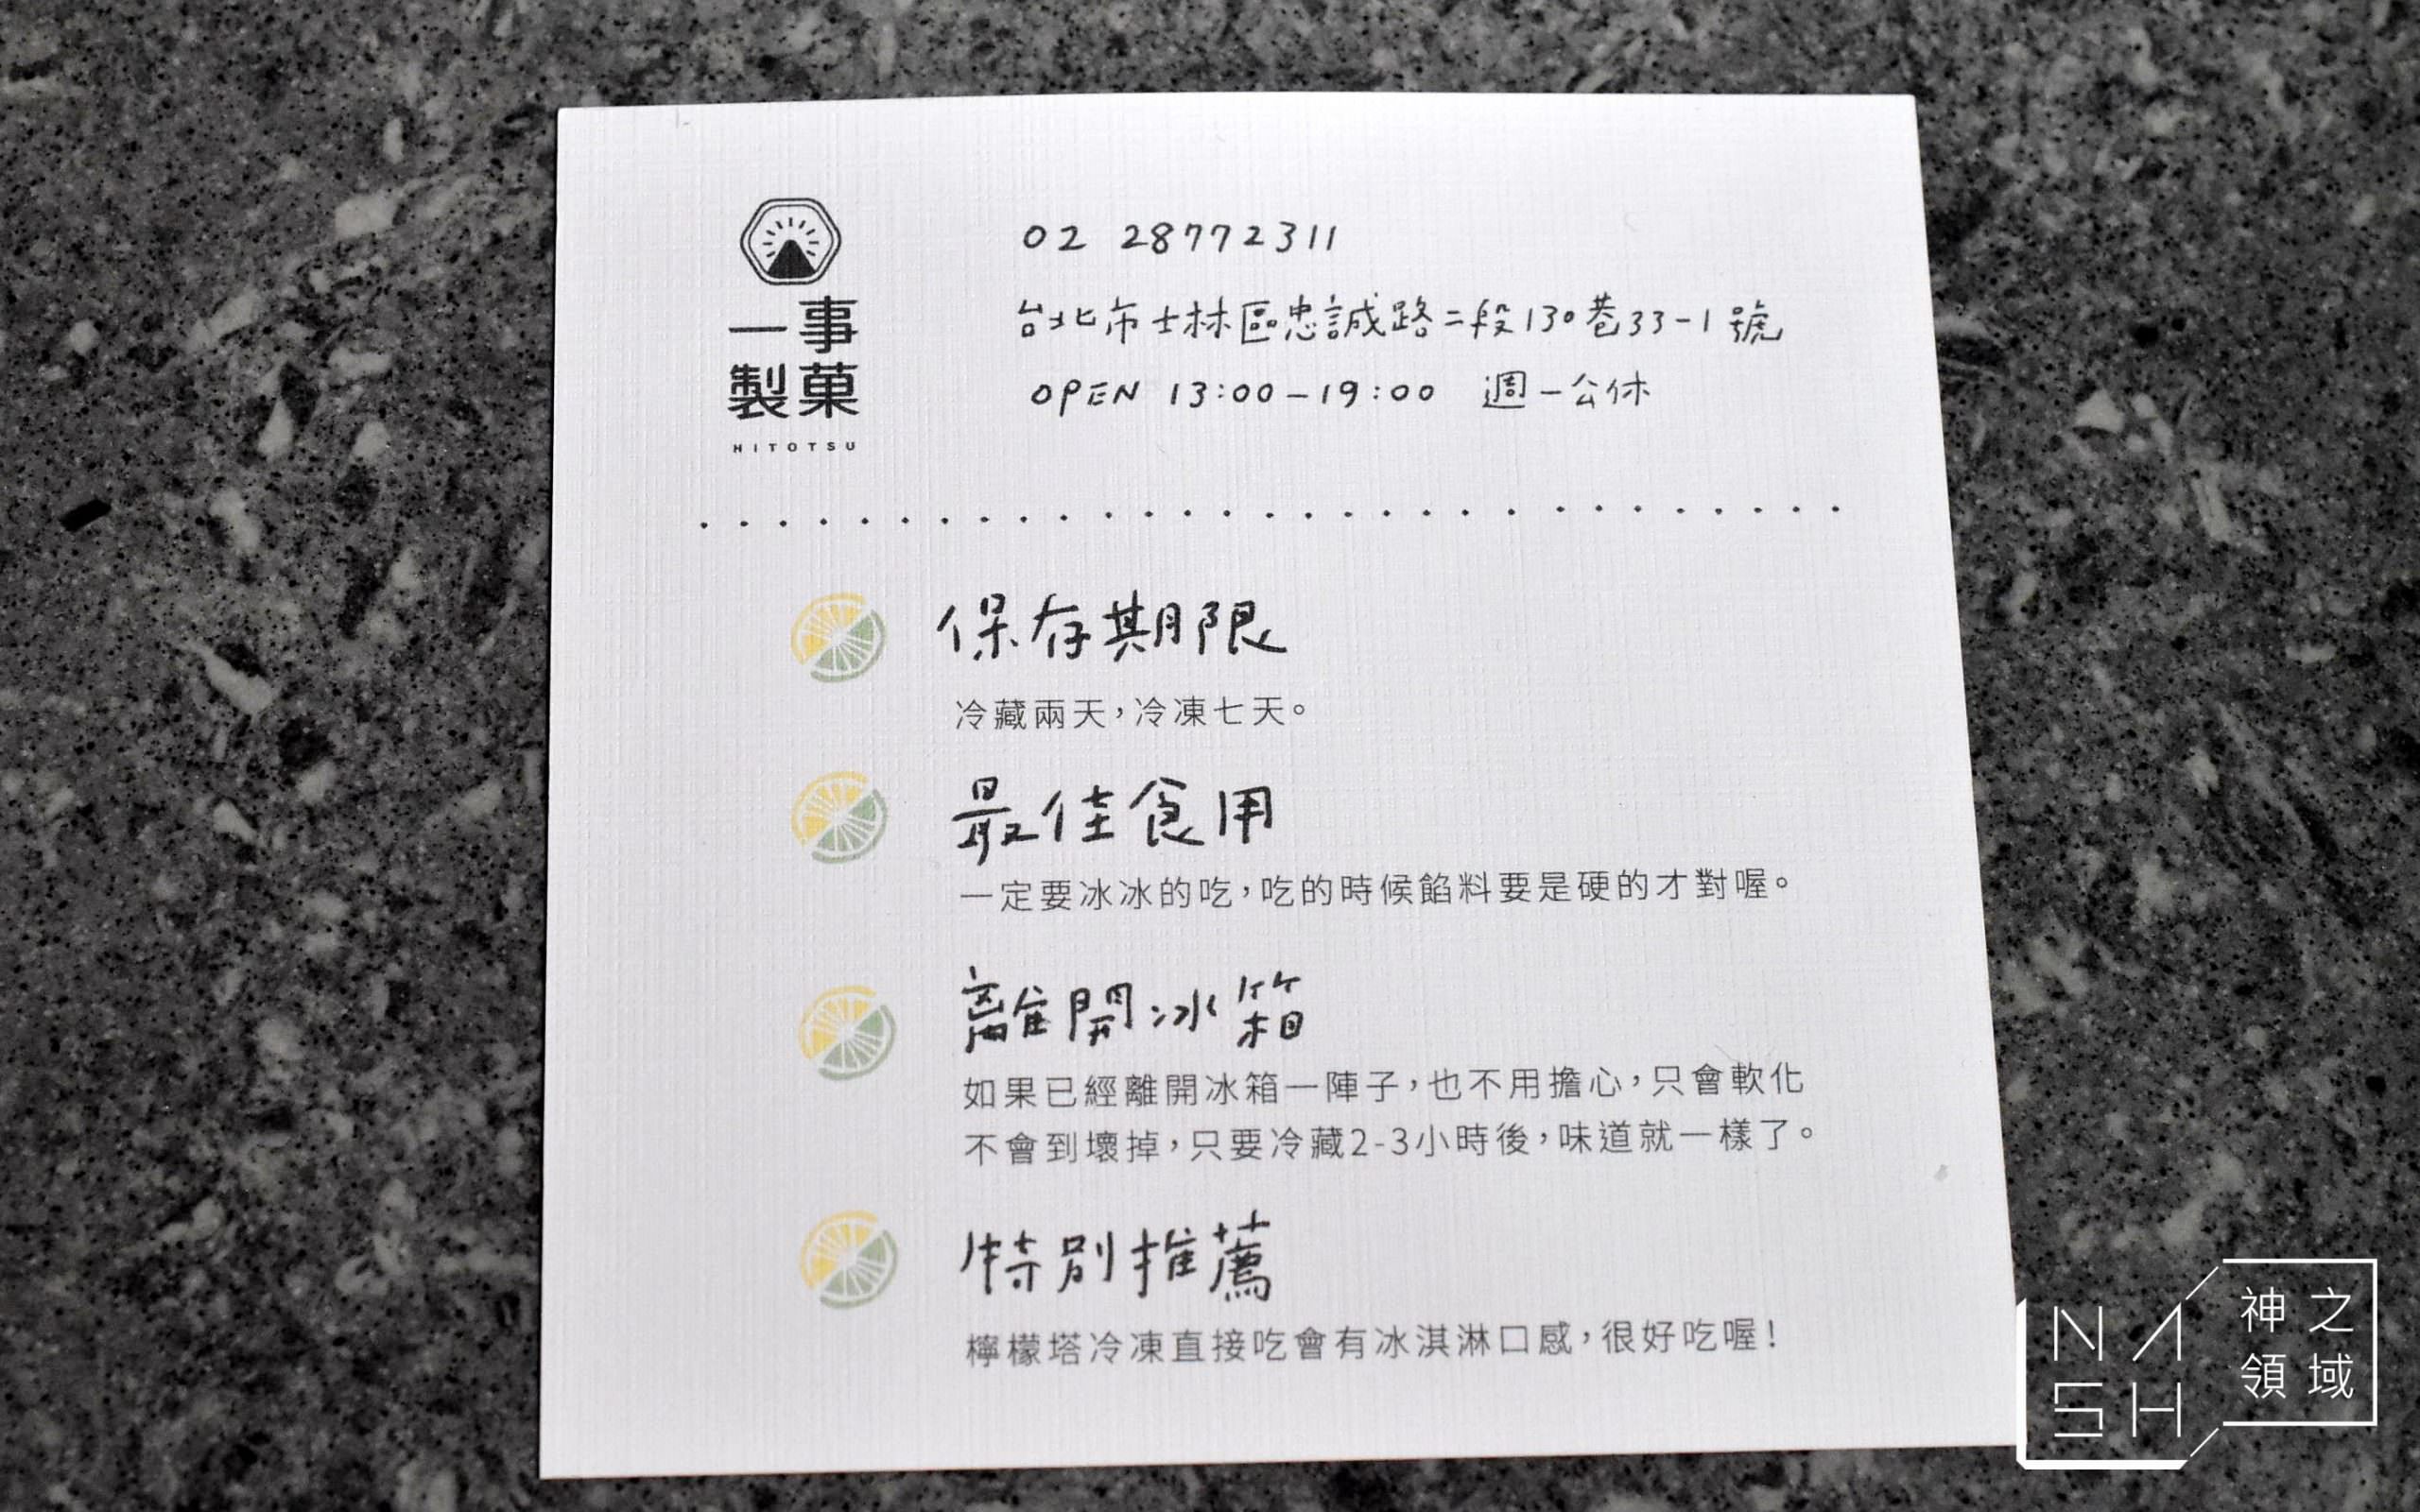 一事
製菓
HITOTSU
02 28772311
台北市士林區忠誠路二段130巷33-1號
OPEN 13:00-19:00 週一公休
保存期限
冷藏兩天，冷凍七天。
最佳食用
一定要冰冰的吃，吃的時候餡料要是硬的才對喔。
離開冰箱
如果已經離開冰箱一陣子，也不用擔心，只會軟化
不會到壞掉，只要冷藏2-3小時後，味道就一樣了。
特別推薦
檸檬塔冷凍直接吃會有冰淇淋口感，很好吃喔！
NASH
神之
領域